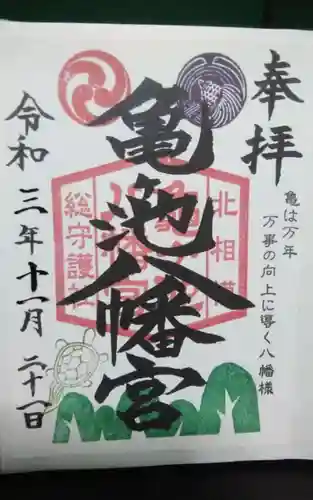 奉拝
亀は万年
万事の向上に導く八幡様
亀ヶ池八幡宮
北相模
総守護社
令和三年十一月二十一日